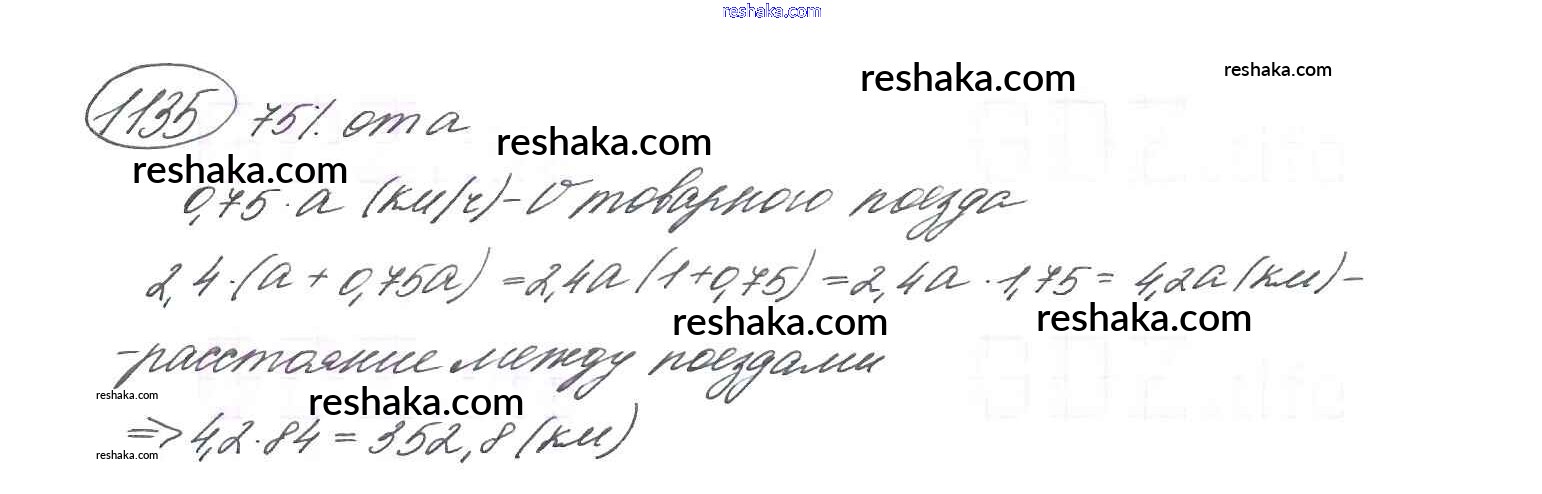 reshaka.com
reshaka.com
reshaka.com
1135 75% от a
reshaka.com
reshaka.com
0,75 · a (км/ч) - V товарного поезда
2,4 · (a + 0,75a) = 2,4a (1+0,75) = 2,4a · 1,75 = 4,2a (км) -
reshaka.com
reshaka.com
- расстояние между поездами
reshaka.com
reshaka.com
=> 4,2 · 84 = 352,8 (км)
reshaka.com